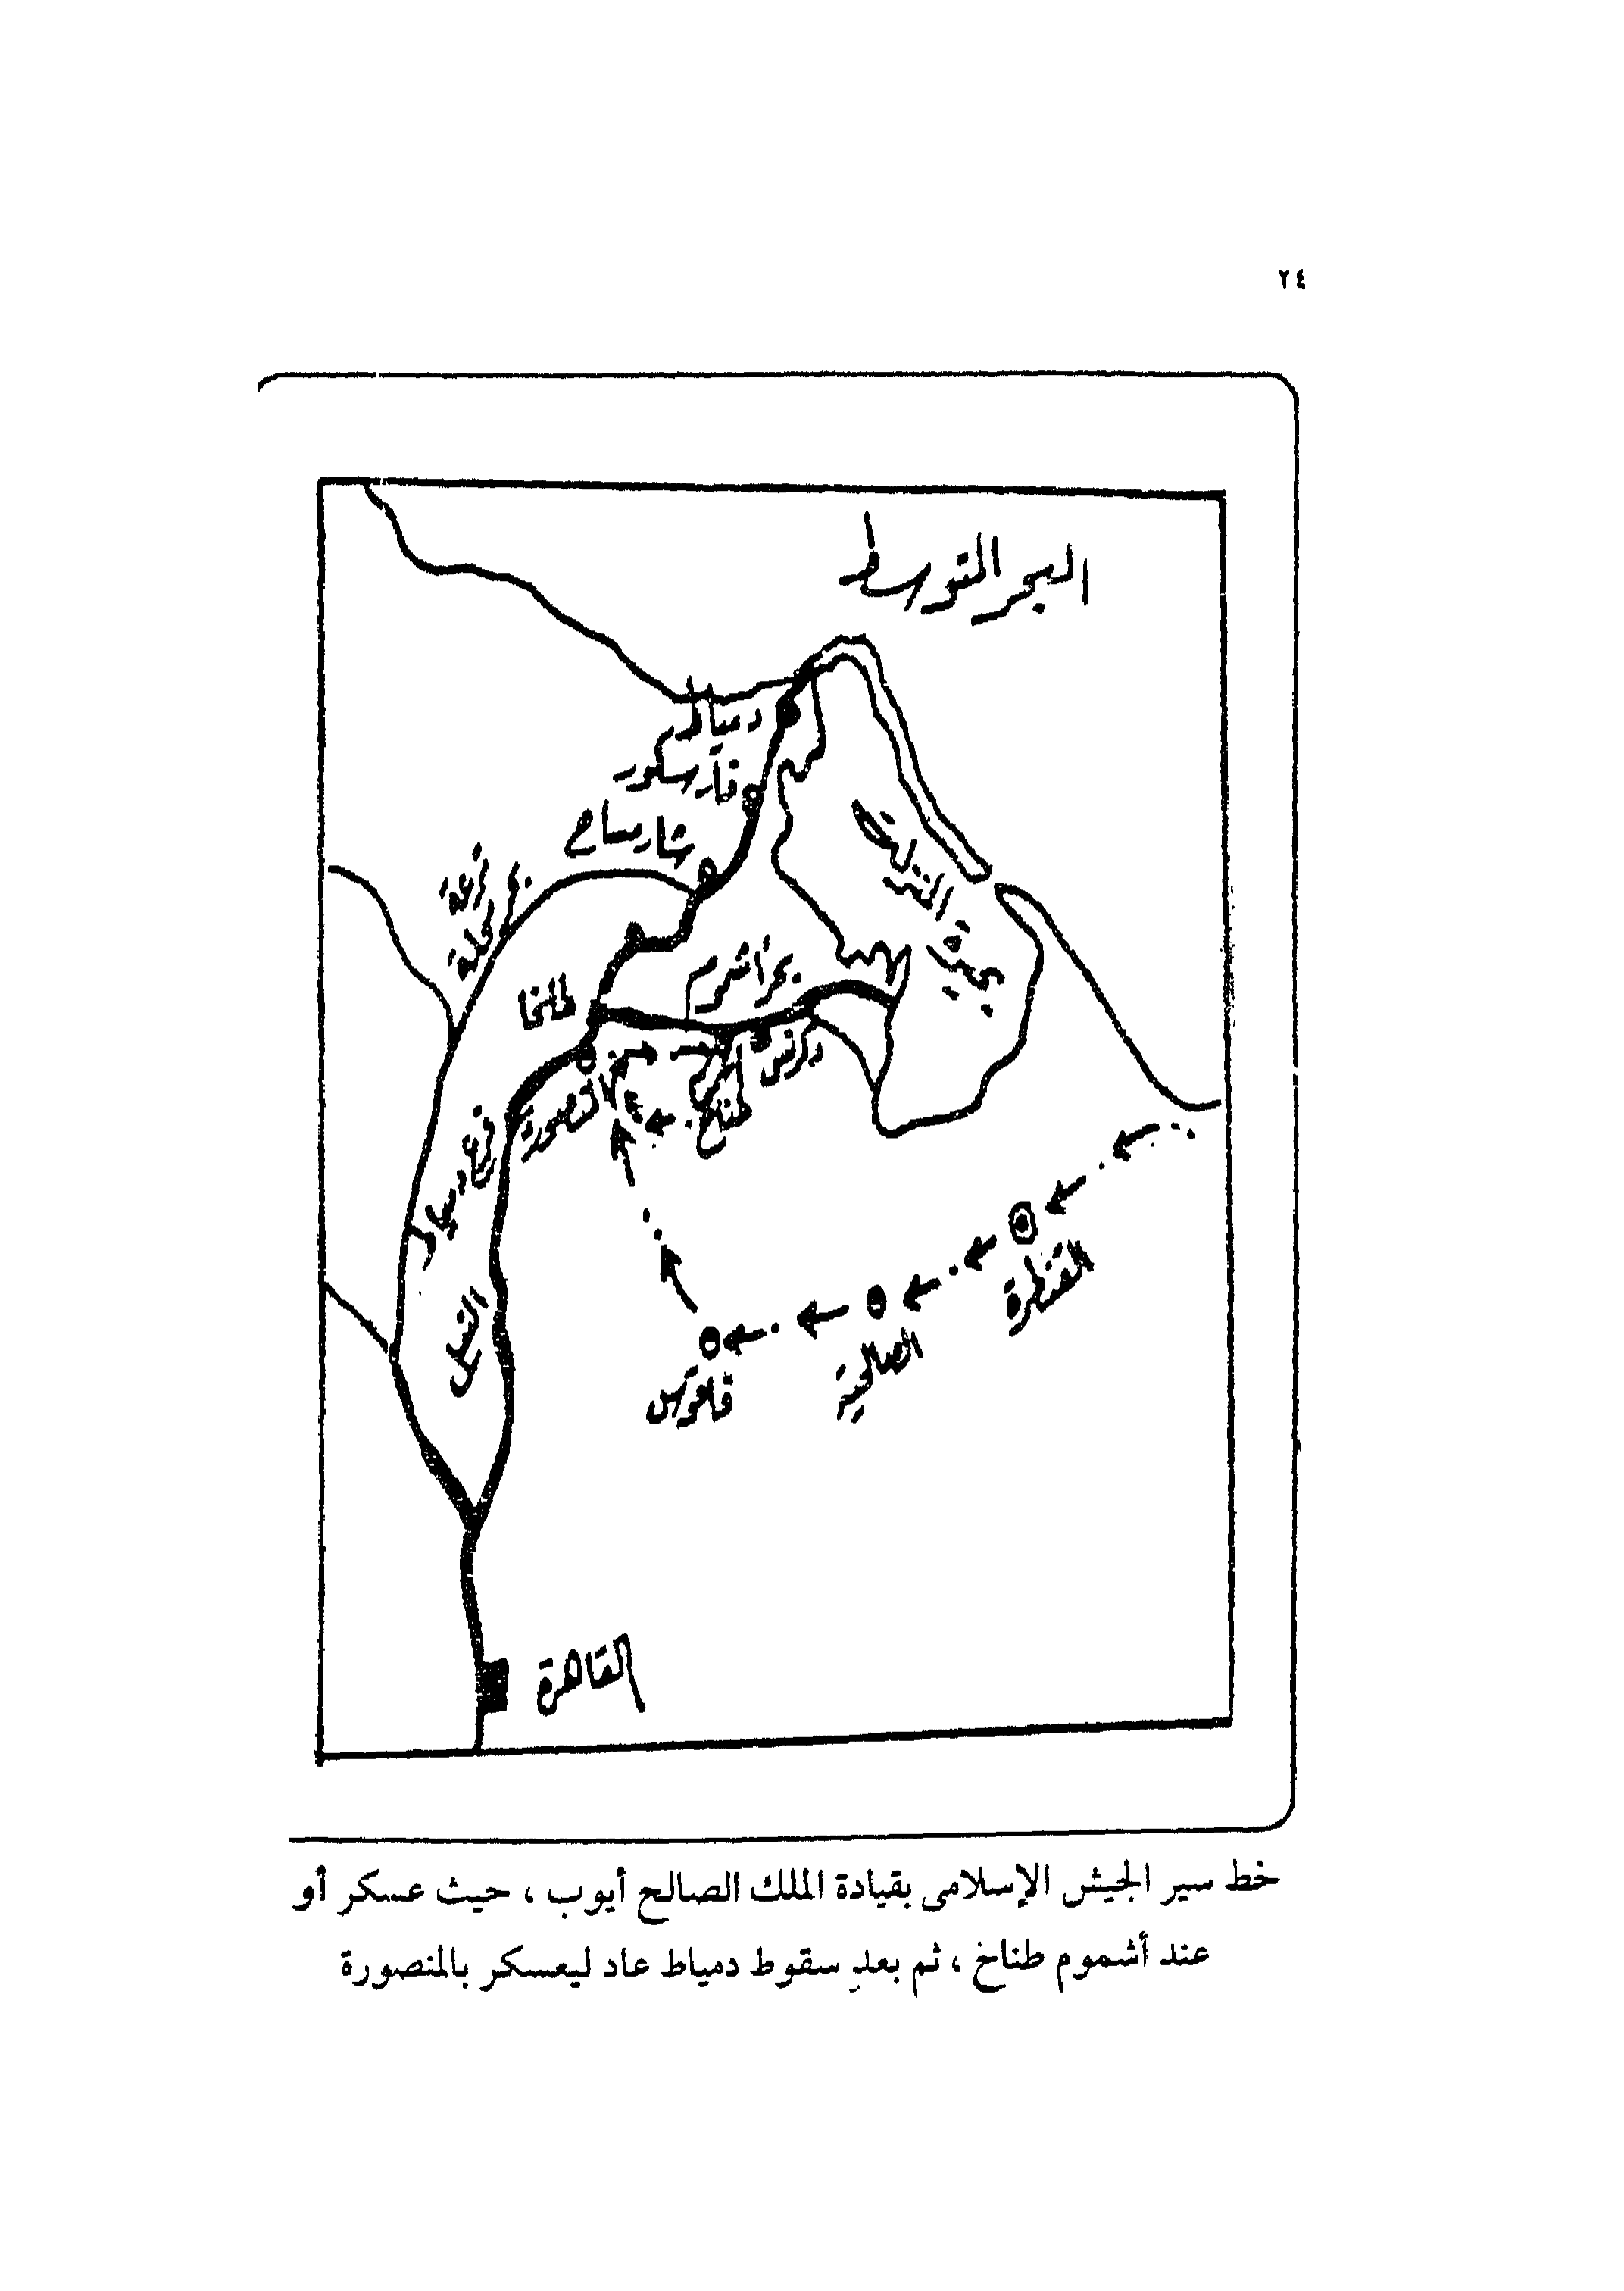 ٢٤
البحر المتوسط
دمياط
فارسكور
شارمساح
ترعة
بحر المحلة
بحيرة المنزلة
بحر اشموم
طلخا
دكرنس
اشموم
طناح
المنصورة
فرع دمياط
النيل
القنطرة
الصالحية
فاقوس
القاهرة
خط سير الجيش الإسلامى بقيادة الملك الصالح أيوب ، حيث عسكر أو
عند أشموم طناخ ، ثم بعد سقوط دمياط عاد ليعسكر بالمنصورة